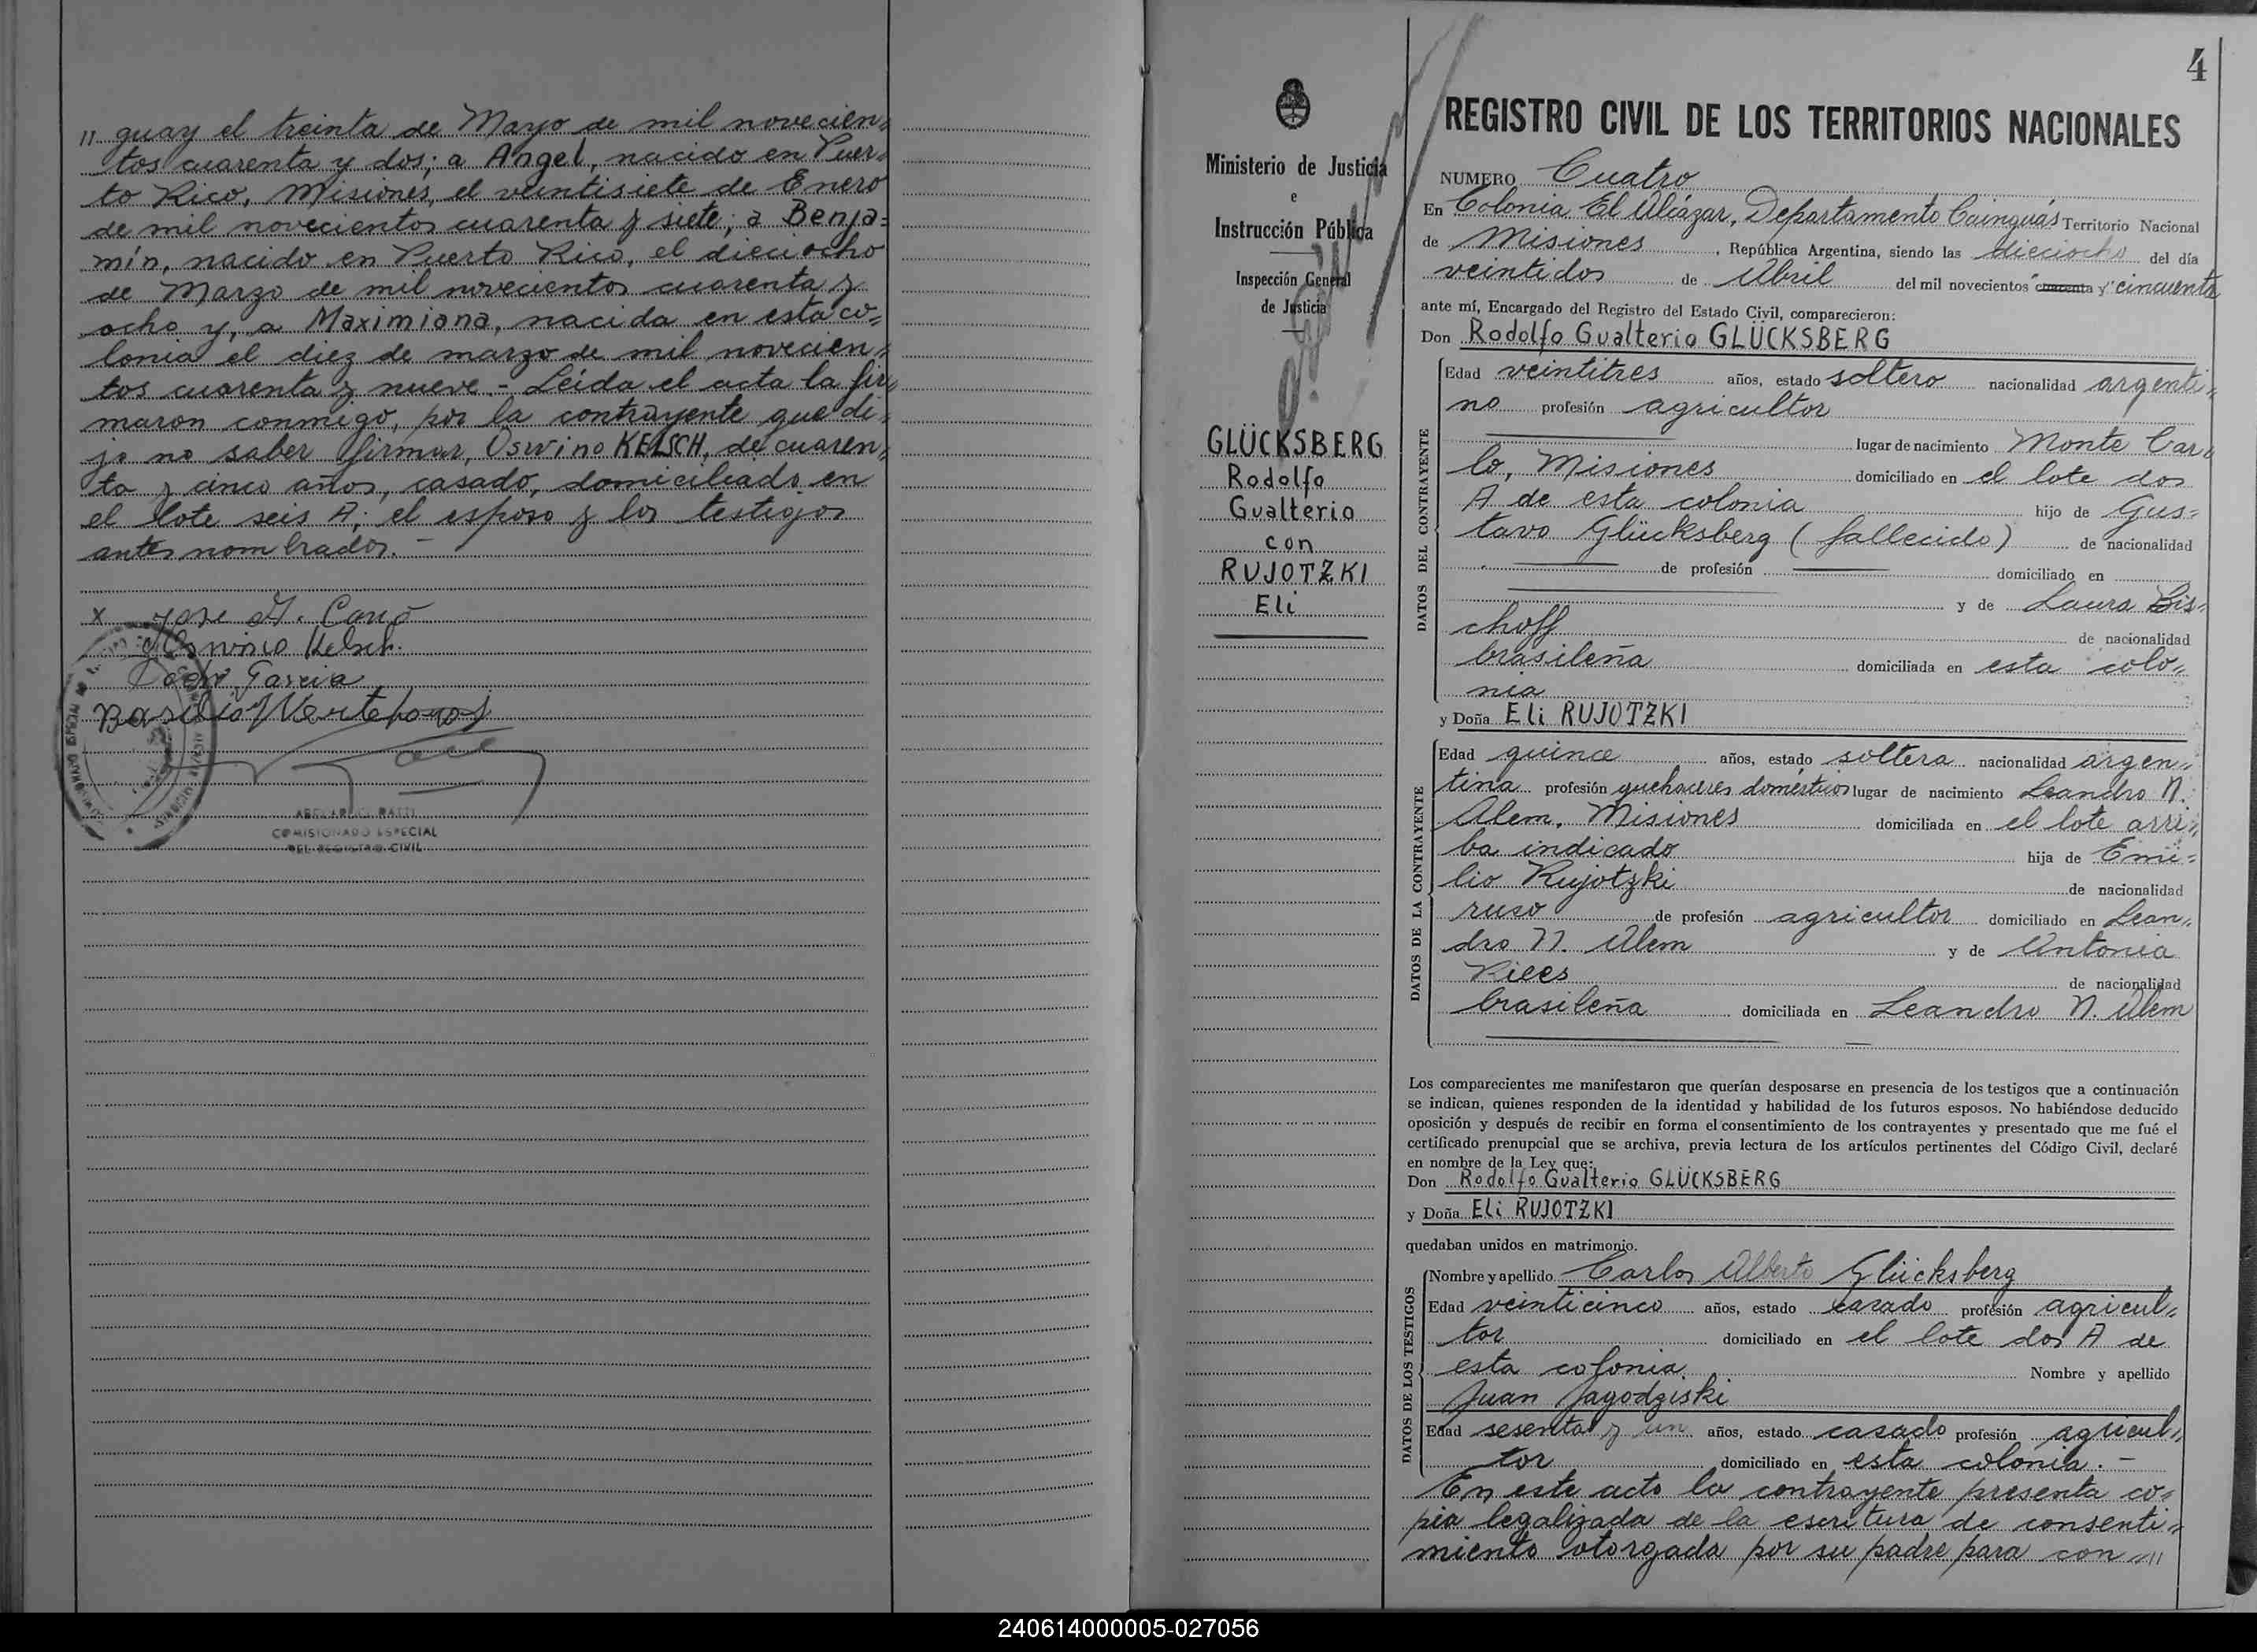 " guay el treinta de Mayo de mil novecien=
tos cuarenta y dos; a Angel, nacido en Puer=
to Rico, Misiones, el veintisiete de Enero
de mil novecientos cuarenta y siete; a Benja=
mín, nacido en Puerto Rico, el dieciocho
de Marzo de mil novecientos cuarenta y
ocho y, a Maximiana, nacida en esta co=
lonia el diez de marzo de mil novecien=
tos cuarenta y nueve.- Leída el acta la fir=
maron conmigo, por la contrayente que di=
jo no saber firmar, Oswino KELSCH, de cuaren=
ta y cinco años, casado, domiciliado en
el lote seis A; el esposo y los testigos
antes nombrados.-
x Jose
Oswino Kelsch.
Garcia
Basilio
COMISIONADO ESPECIAL
DEL REGISTRO CIVIL
4
Ministerio de Justicia
e
Instrucción Pública
Inspección General
de Justicia
GLÜCKSBERG
Rodolfo
Gualterio
con
RUJOTZKI
Eli
REGISTRO CIVIL DE LOS TERRITORIOS NACIONALES
NUMERO Cuatro
En Colonia El Alcázar, Departamento Cainguás Territorio Nacional
de Misiones, República Argentina, siendo las dieciocho del día
veintidos de Abril del mil novecientos cuarenta y "cincuenta
ante mí, Encargado del Registro del Estado Civil, comparecieron:
Don Rodolfo Gualterio GLÜCKSBERG
DATOS DEL CONTRAYENTE
Edad veintitres años, estado soltero nacionalidad argenti=
no profesión agricultor
lugar de nacimiento Monte Car=
lo, Misiones domiciliado en el lote dos
A de esta colonia hijo de Gus=
tavo Glücksberg (fallecido) de nacionalidad
de profesión domiciliado en
y de Laura Bis=
choff de nacionalidad
brasileña domiciliada en esta colo=
nia
y Doña Eli RUJOTZKI
DATOS DE LA CONTRAYENTE
Edad quince años, estado soltera nacionalidad argen=
tina profesión quehaceres domésticos lugar de nacimiento Leandro N.
Alem, Misiones domiciliada en el lote arri=
ba indicado hija de Emi=
lio Rujotzki de nacionalidad
ruso de profesión agricultor domiciliado en Lean=
dro N. Alem y de Antonia
Riees de nacionalidad
brasileña domiciliada en Leandro N. Alem
Los comparecientes me manifestaron que querían desposarse en presencia de los testigos que a continuación
se indican, quienes responden de la identidad y habilidad de los futuros esposos. No habiéndose deducido
oposición y después de recibir en forma el consentimiento de los contrayentes y presentado que me fué el
certificado prenupcial que se archiva, previa lectura de los artículos pertinentes del Código Civil, declaré
en nombre de la Ley que:
Don Rodolfo Gualterio GLÜCKSBERG
y Doña Eli RUJOTZKI
quedaban unidos en matrimonio.
DATOS DE LOS TESTIGOS
Nombre y apellido Carlos Alberto Glücksberg
Edad veinticinco años, estado casado profesión agricul=
tor domiciliado en el lote dos A de
esta colonia. Nombre y apellido
Juan Jagodziski
Edad sesenta y un años, estado casado profesión agricul=
tor domiciliado en esta colonia.-
En este acto la contrayente presenta co=
pia legalizada de la escritura de consenti=
miento otorgada por su padre para con="
240614000005-027056